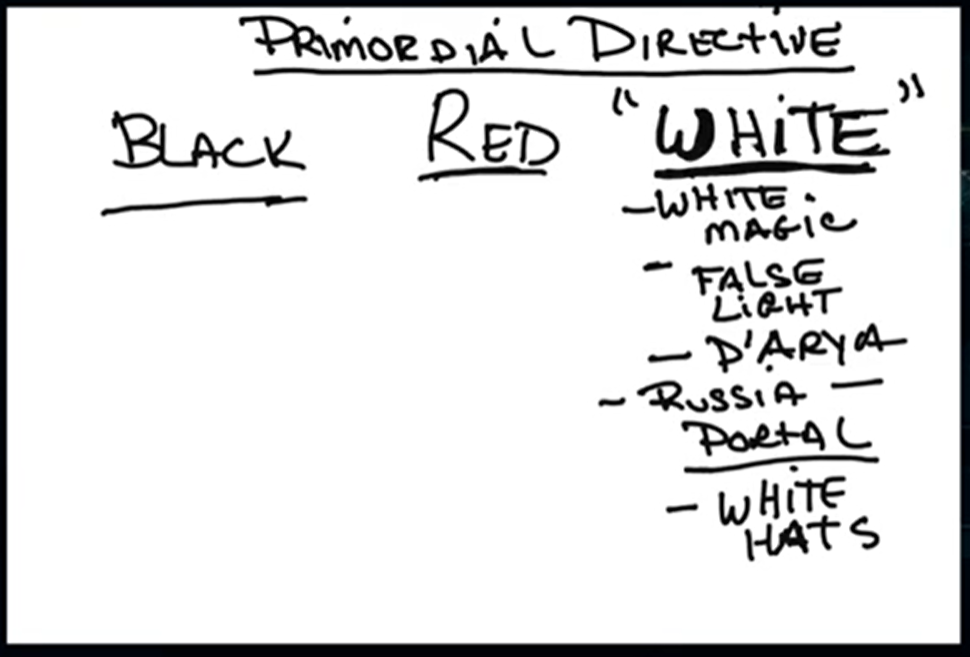 PRIMORDIAL DIRECTIVE
BLACK RED "WHITE"
- WHITE
MAGIC
- FALSE
LIGHT
- D'ARYA
- RUSSIA -
PORTAL
- WHITE
HATS